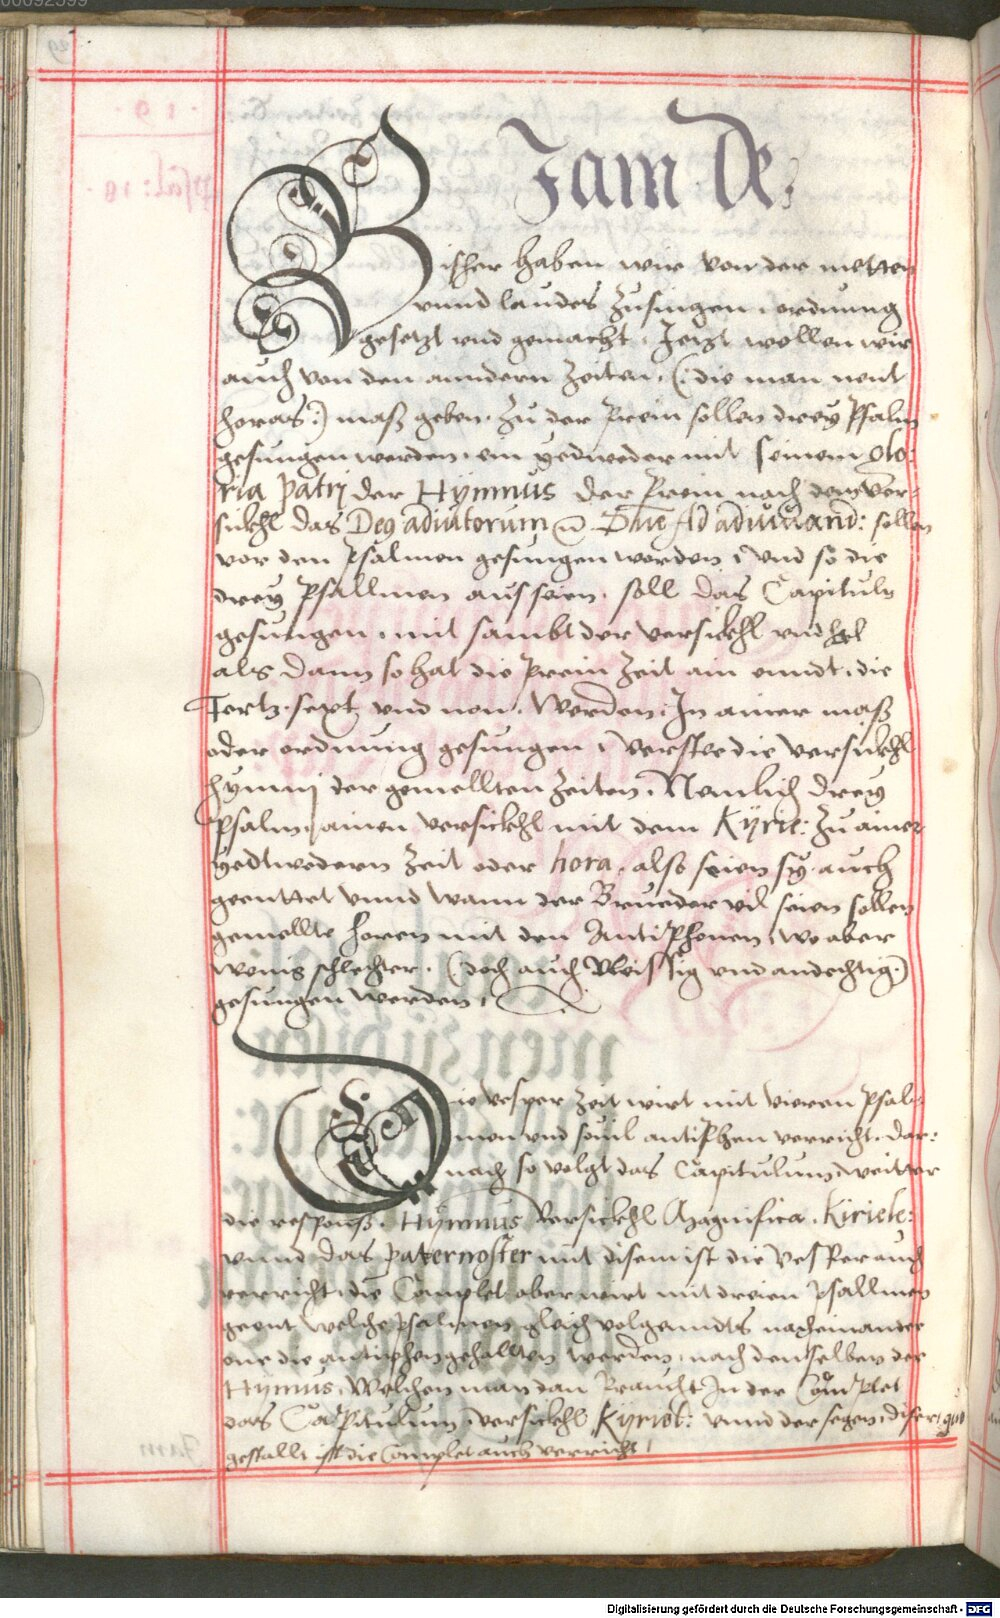 Jam De:
Bisher haben wir von der metten
vnnd laudes zusingen, ordnung
gesetzt vnd gemacht. Jetzt wollen wir
auch von den anndern Zeiten, (: die man nent
horas:) maß geben. Zu der Prein sollen drey Psalm
gesungen werden. ein yedweder mit seinem glo:
ria patrj der Hÿmnus der Prein nach dem Ver-
sickhl das Deg adiutorium Dne Ad adiuuand: sollen
vor den Psalmen gesungen werden, vnd so die
drey Psallmen aus seien. soll das Capitule
gesungen, mit sambt der versickhl vnd
als dann so hat die prein Zeit ain enndt. die
Tertz. sext vnd non. Werden. Jn ainer maß
oder ordnung gesungen, Verstee die versickhl
hymnj der gemellten Zeiten. Nemlich drey
Psalm, ainen versickhl mit dem Kÿrie: Zu ainer
yedtwedern Zeit oder hora, also seien sy auch
geenttet vnnd wann der Brueder vil seien sollen
gemellte horen mit den Antiphonen, wo aber
wenig schlechter. (Doch auch vleissig vnd andechtig.)
gesungen werden.
Die vesper Zeit wirt mit vieren psal-
men vnd souil antiphen verricht. dar:
nach so volgt das Capitulum, weitter
die respons. Hÿmnus Versickhl Magnifica. Kiriele:
vnnd das paternoster mit disem ist die Vesper auch
verricht, die Complet aber wirt mit dreien psallmen
geent welche psalmen gleich volgenndts nacheinander
one die antiphen gehallten werden, nach denselben der
Hÿmus, Welchen man dan Braucht Jn der Complet
das Capitulum, versickhl Kyriel: vnnd der segen, diser
gestallt ist die Complet auch verricht
Digitalisierung gefördert durch die Deutsche Forschungsgemeinschaft - DFG